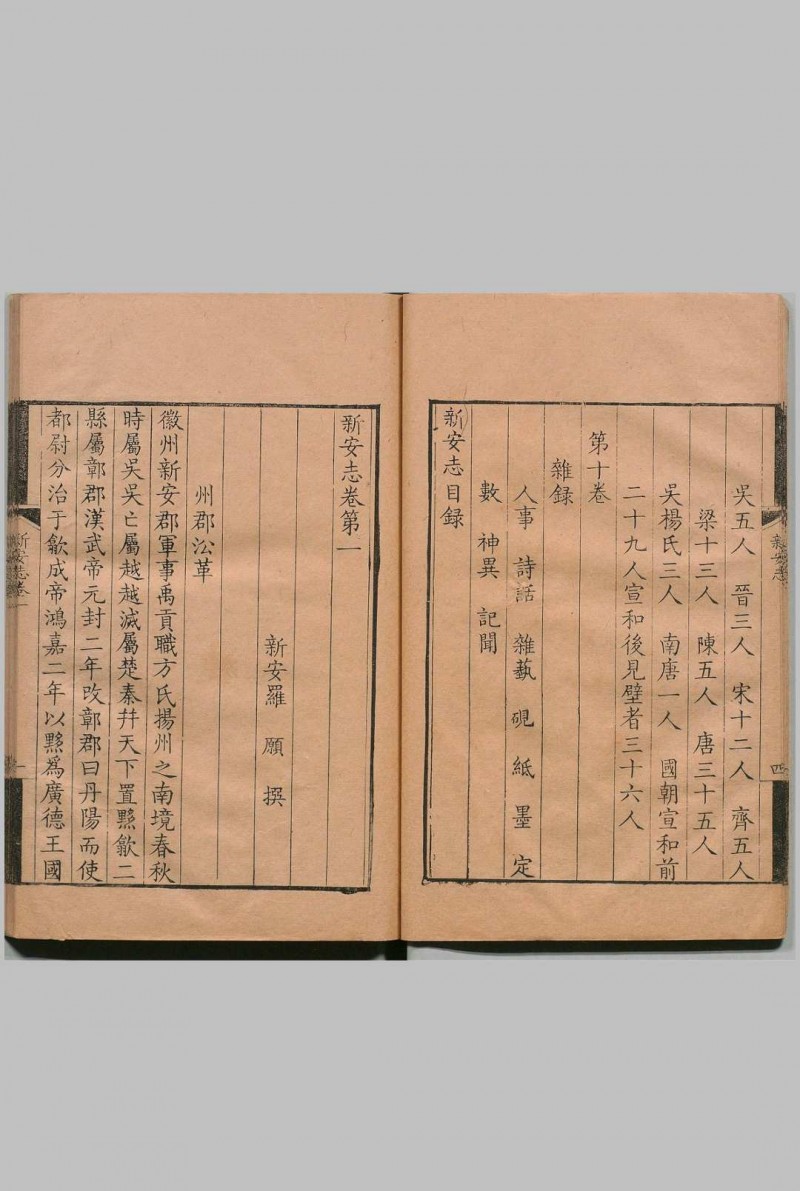 吳五人 晉三人 宋十二人 齊五人
梁十三人 陳五人 唐三十五人
吳楊氏三人 南唐一人 國朝宣和前
二十九人宣和後見壁者三十六人
第十卷
雜録
人事 詩話 雜藝 硯 紙 墨 定
數 神異 記聞
新安志目録
新安志
四
新安志卷第一
新安羅 願 撰
州郡㳂革
徽州新安郡軍事禹貢職方氏揚州之南境春秋
時屬吳吳亡屬越越滅屬楚秦幷天下置黟歙二
縣屬鄣郡漢武帝元封二年改鄣郡曰丹陽而使
都尉分治于歙成帝鴻嘉二年以黟爲廣德王國
新安志卷一